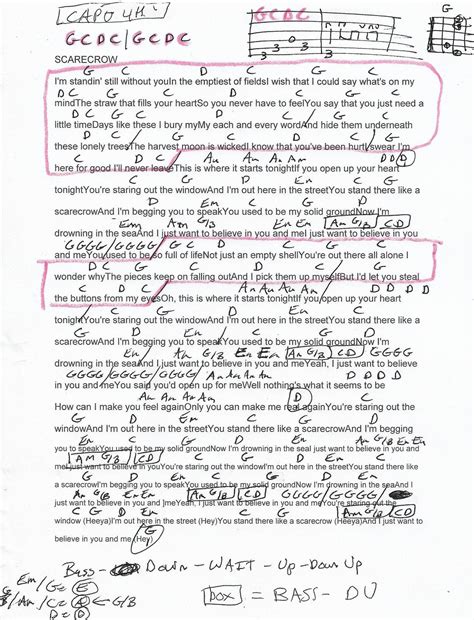 CAPO 4th
GCDC/GCDC
GCDC
SCARECROW
G C D C G C
I'm standin' still without youIn the emptiest of fieldsI wish that I could say what's on my
D C G C D C G
mindThe straw that fills your heartSo you never have to feelYou say that you just need a
C D C G C
little timeDays like these I bury myMy each and every wordAnd hide them underneath
D C G C D C
these lonely treesThe harvest moon is wickedI know that you've been hurtI swear I'm
G C D C Am Am Am Am D D D
here for good I'll never leaveThis is where it starts tonightIf you open up your heart
G C G
tonightYou're staring out the windowAnd I'm out here in the streetYou stand there like a
D Em C G
scarecrowAnd I'm begging you to speakYou used to be my solid groundNow I'm
D Em Am G/B Em Em Am G/B C D
drowning in the seaAnd I just want to believe in you and meI just want to believe in you
GGGG/GGGG G C D C G C
and meYou used to be so full of lifeNot just an empty shellYou're out there all alone I
D C G C D C
wonder whyThe pieces keep on falling outAnd I pick them up myselfBut I'd let you steal
Am Am Am Am D D D D
the buttons from my eyesOh, this is where it starts tonightIf you open up your heart
G C G
tonightYou're staring out the windowAnd I'm out here in the streetYou stand there like a
D Em C G D
scarecrowAnd I'm begging you to speakYou used to be my solid groundNow I'm
Em Am G/B Em Em Am G/B C D GGGG
drowning in the seaAnd I just want to believe in you and meYeah, I just want to believe
GGGG/GGGG/GGGG/Am Am Am Am D D D D
in you and meYou said you'd open up for meWell nothing's what it seems to be
Am Am Am Am D G
How can I make you feel againOnly you can make me real againYou're staring out the
C G D
windowAnd I'm out here in the streetYou stand there like a scarecrowAnd I'm begging
Em C G D Em Am G/B Em Em
you to speakYou used to be my solid groundNow I'm drowning in the seaI just want to believe in you and
Am G/B C D G C G
meI just want to believe in youYou're staring out the windowI'm out here in the streetYou stand there like
D Em C G D Em
a scarecrowI'm begging you to speakYou used to be my solid groundNow I'm drowning in the seaAnd I
Am G/B Em Em Am G/B C D GGGG/GGGG/
just want to believe in you and I just want to believe in you and ]meYeah, I just want to believe in you and meYou're staring out the
C G D Em Am G/B C D
window (Heeya)I'm out here in the street (Hey)You stand there like a scarecrow (Heeya)And I just want to
believe in you and me (Hey)
BASS - DOWN - WAIT - UP - DOWN UP
Em/G = E
B/Am/C = A ← G/B
D = D
BOX = BASS - DU